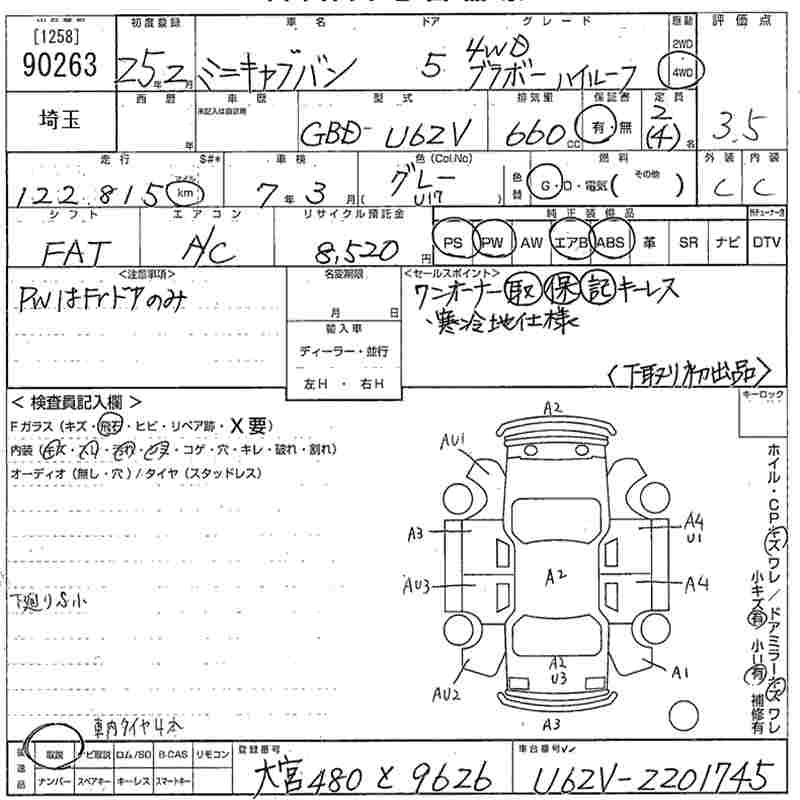 [1258]
90263
初度登録
25年2月
車名
ミニキャブバン
ドア
5
グレード
4WD
ブラボーハイルーフ
駆動
2WD
4WD
評価点
3.5
埼玉
西暦
年
車歴
未記入は自家用
型式
GBD-U62V
排気量
660cc
保証書
有・無
定員
2
(4)名
走行
S#*
122,815
マイル
km
車検
7年3月
色(Col.No)
グレー
(U17)
色替
燃料
G・D・電気(その他)
外装
C
内装
C
シフト
FAT
エアコン
A/C
リサイクル預託金
8,520円
純正装備品
PS PW AW エアB ABS 革 SR ナビ
DTV
<注意事項>
PWはFrドアのみ
名変期限
月 日
輸入車
ディーラー・並行
左H・右H
<セールスポイント>
ワンオーナー 取 保 記 キーレス
・寒冷地仕様
<下取り初出品>
キーロック
<検査員記入欄>
Fガラス(キズ・飛石・ヒビ・リペア跡・X要)
・コゲ・穴・キレ・破れ・割れ)
オーディオ(無し・穴)/タイヤ(スタッドレス)
下廻りS小
車内タイヤ4本
A2
AU1
A3
A4
U1
AU3
A2
A4
A2
U3
AU2
A1
A3
ホイル・CPキズワレ/ドアミラーキズワレ
小キズ有 小U有 補修有
後送品
取説 ナビ取説 ロム/SD B-CAS リモコン
ナンバー スペアキー キーレス スマートキー
登録番号
大宮480と9626
車台番号
U62V-2201745